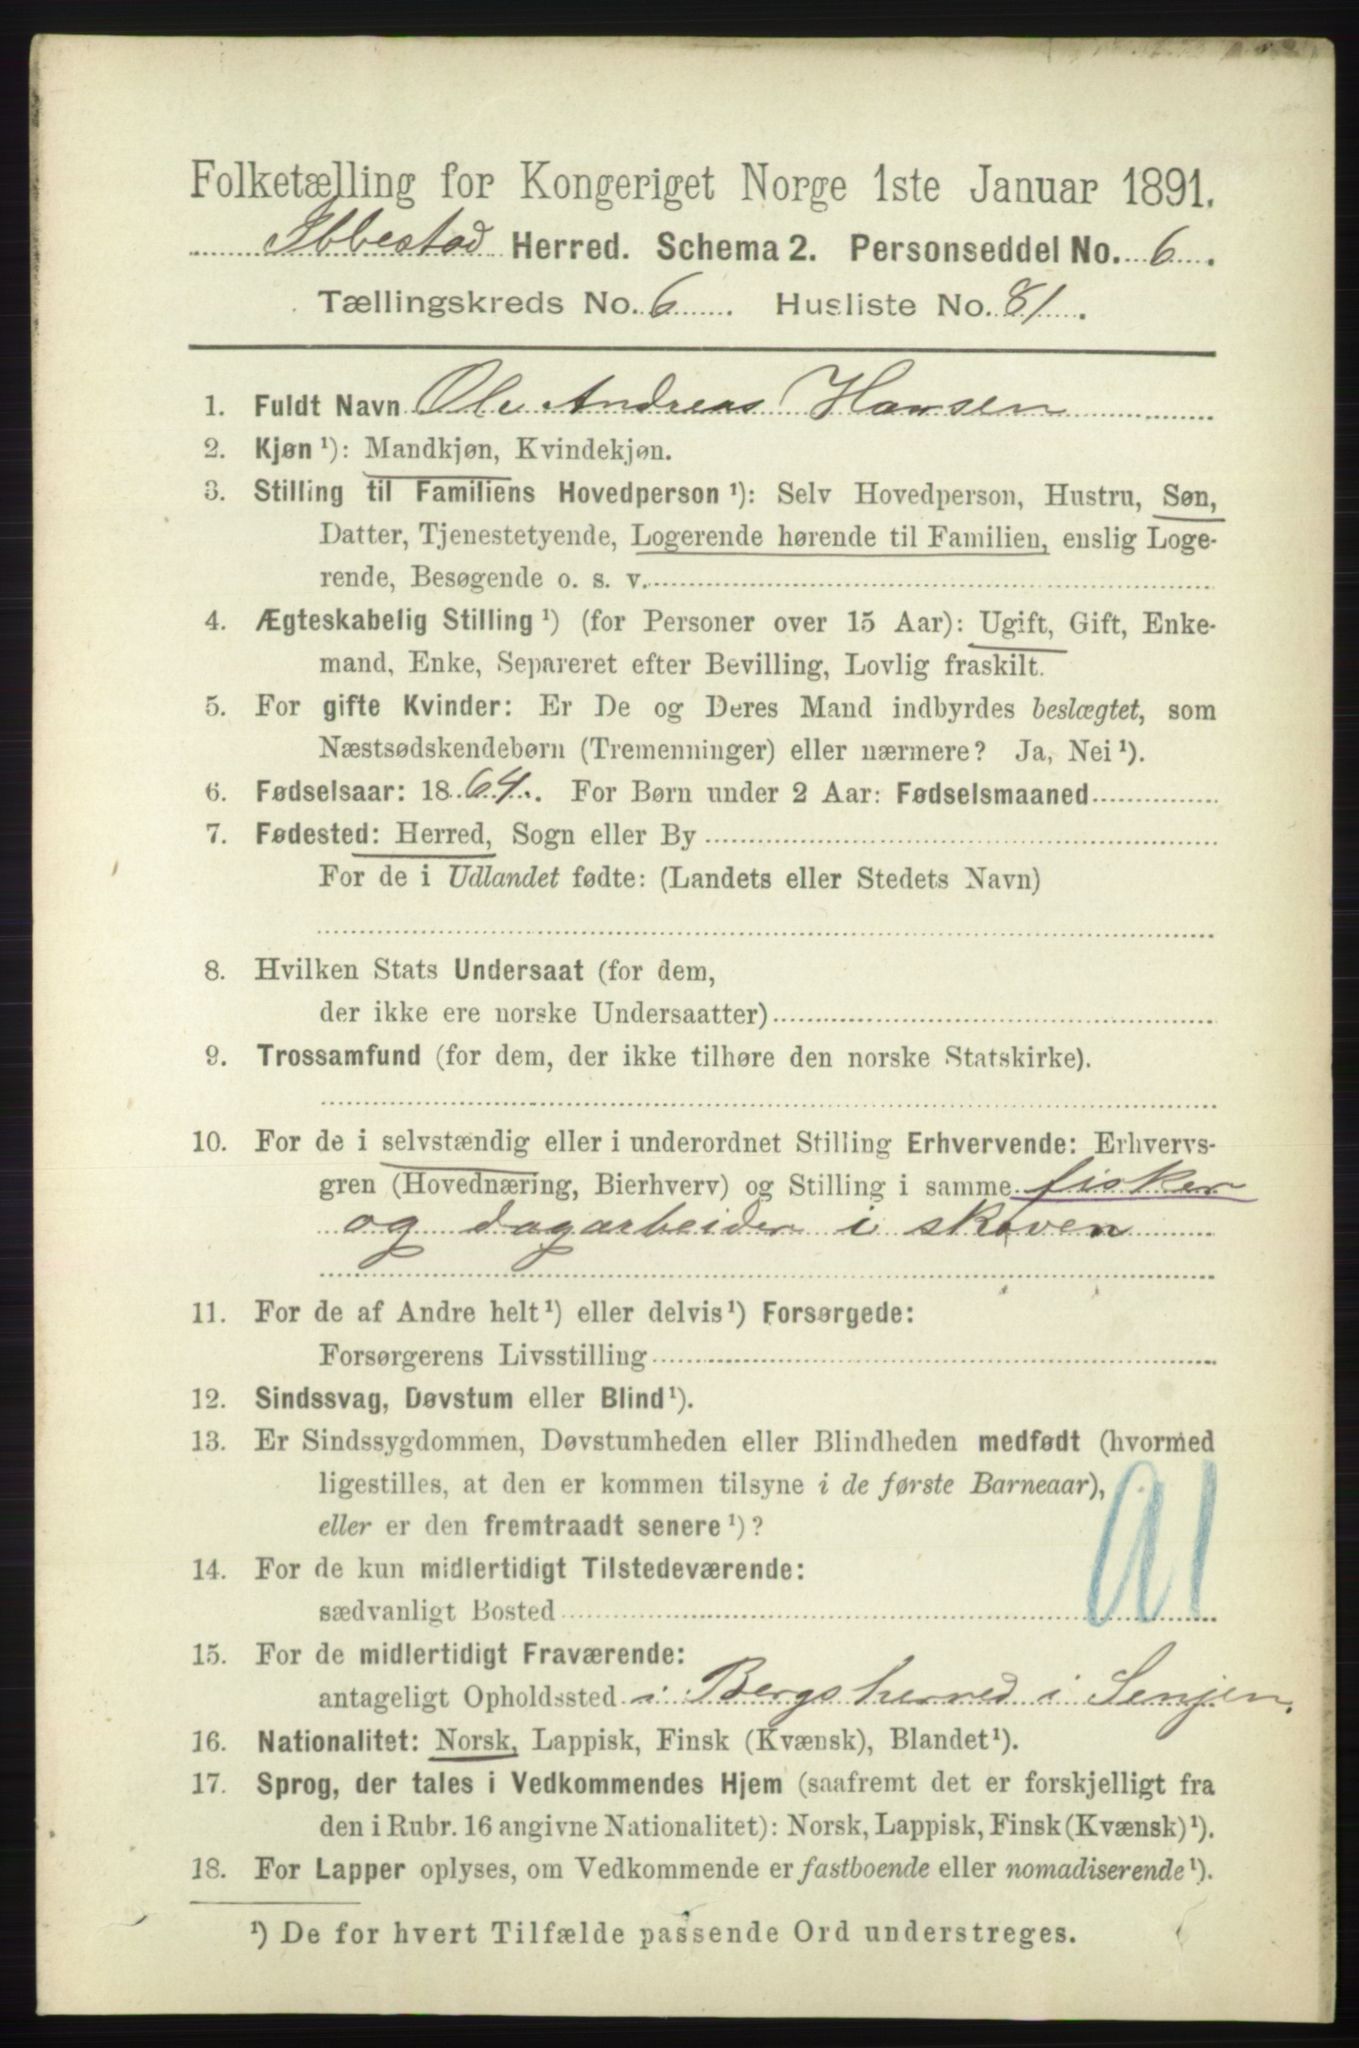 Folketælling for Kongeriget Norge 1ste Januar 1891.
Ibbestad Herred. Schema 2. Personseddel No. 6.
Tællingskreds No. 6. Husliste No. 81.
1. Fuldt Navn Ole Andreas Hansen
2. Kjøn ¹): Mandkjøn, Kvindekjøn.
3. Stilling til Familiens Hovedperson ¹): Selv Hovedperson, Hustru, Søn,
Datter, Tjenestetyende, Logerende hørende til Familien, enslig Loge-
rende, Besøgende o. s. v.
4. Ægteskabelig Stilling ¹) (for Personer over 15 Aar): Ugift, Gift, Enke-
mand, Enke, Separeret efter Bevilling, Lovlig fraskilt.
5. For gifte Kvinder: Er De og Deres Mand indbyrdes beslægtet, som
Næstsødskendebørn (Tremenninger) eller nærmere? Ja, Nei ¹).
6. Fødselsaar: 1864. For Børn under 2 Aar: Fødselsmaaned
7. Fødested: Herred, Sogn eller By
For de i Udlandet fødte: (Landets eller Stedets Navn)
8. Hvilken Stats Undersaat (for dem,
der ikke ere norske Undersaatter)
9. Trossamfund (for dem, der ikke tilhøre den norske Statskirke).
10. For de i selvstændig eller i underordnet Stilling Erhvervende: Erhvervs-
gren (Hovednæring, Bierhverv) og Stilling i samme fisker
og dagarbeider i skoven
11. For de af Andre helt ¹) eller delvis ¹) Forsørgede:
Forsørgerens Livsstilling
12. Sindssvag, Døvstum eller Blind ¹).
13. Er Sindssygdommen, Døvstumheden eller Blindheden medfødt (hvormed
ligestilles, at den er kommen tilsyne i de første Barneaar),
eller er den fremtraadt senere ¹)?
14. For de kun midlertidigt Tilstedeværende:
sædvanligt Bosted
15. For de midlertidigt Fraværende:
antageligt Opholdssted i Bergs herred i Senjen.
16. Nationalitet: Norsk, Lappisk, Finsk (Kvænsk), Blandet ¹).
17. Sprog, der tales i Vedkommendes Hjem (saafremt det er forskjelligt fra
den i Rubr. 16 angivne Nationalitet): Norsk, Lappisk, Finsk (Kvænsk) ¹).
18. For Lapper oplyses, om Vedkommende er fastboende eller nomadiserende ¹).
¹) De for hvert Tilfælde passende Ord understreges.